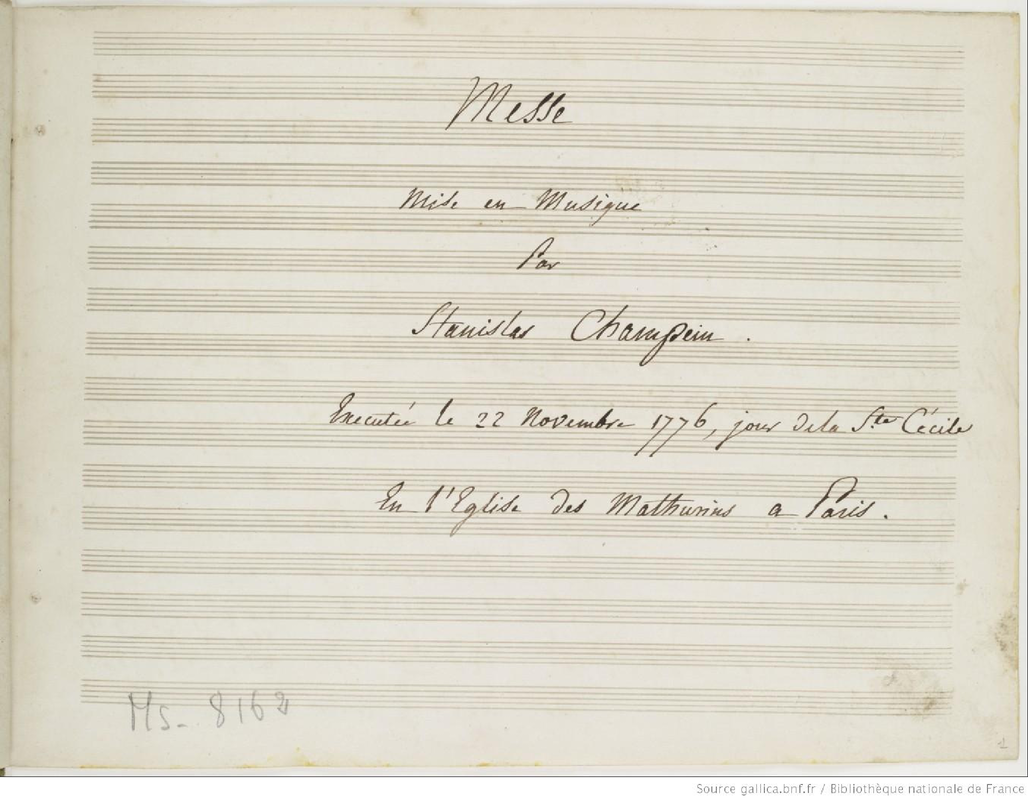 Messe
Mise en Musique
Par
Stanislas Champein.
Executée le 22 Novembre 1776, jour de la Ste Cécile
En l'Eglise des Mathurins a Paris.
Ms-8162
1
Source gallica.bnf.fr / Bibliothèque nationale de France